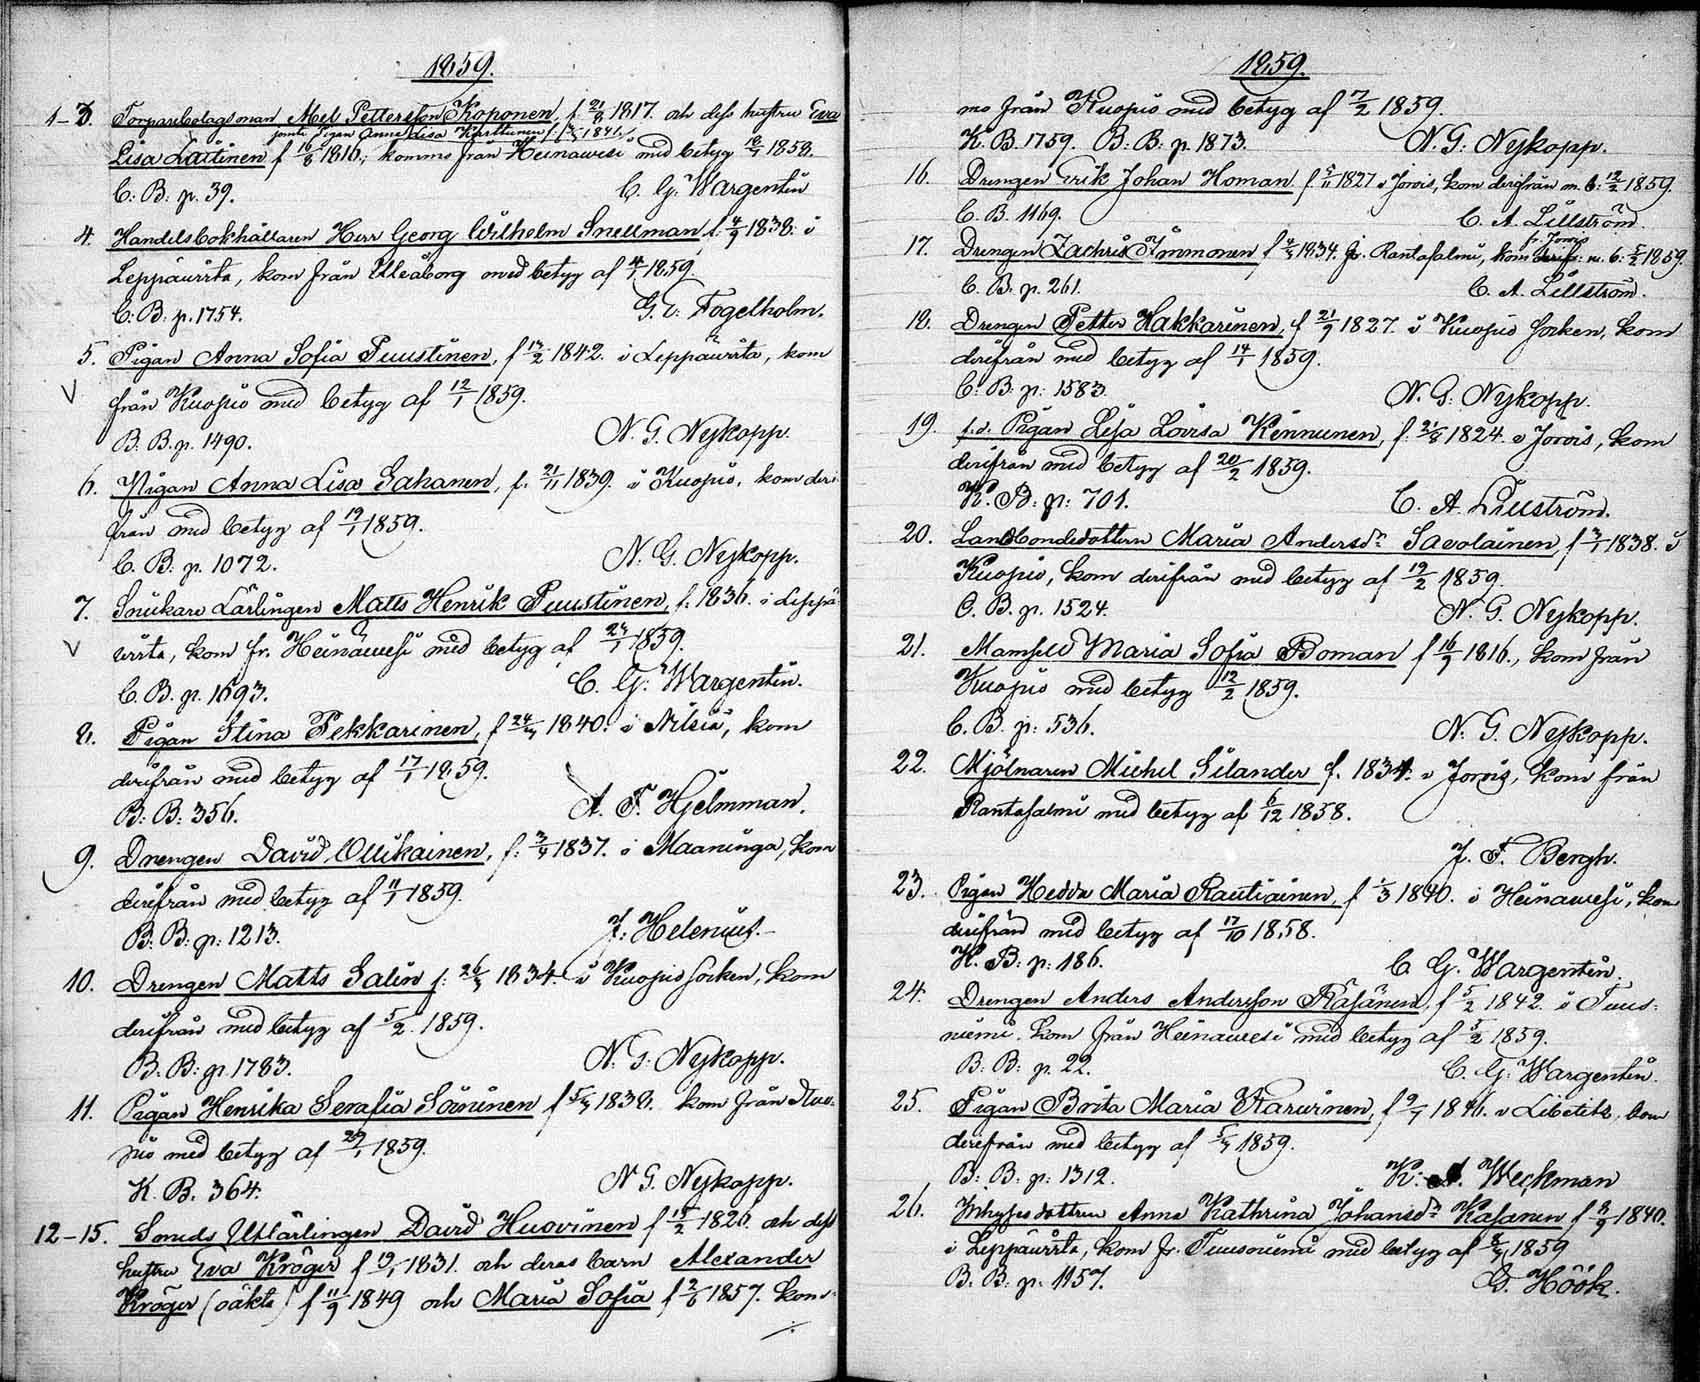 1859.
1-3. Torparebolagsman Mel Pettersson Koponen, f. 21/8 1817. och dess hustru Eva
jemte Pigan Anna Lisa Karttunen f. 1841.
Lisa Laitinen f 16/8 1816., komma från Heinawesi med betyg 18/1 1858.
C. B. p. 39. C. G. Wargentin
4. Handelsbokhållaren Herr Georg Wilhelm Snellman f. 4/9 1838. i
Leppäwirta, kom från Uleåborg med betyg af 4/1 1859.
C. B. p. 1754. G. E. Fogelholm.
5. Pigan Anna Sofia Puustinen, f 13/2 1842. i Leppäwirta, kom
från Kuopio med betyg af 12/1 1859.
B. B. p. 1490. N. G. Nykopp.
6. Pigan Anna Lisa Sahanen, f. 21/11 1839. i Kuopio, kom deri-
från med betyg af 19/1 1859.
C. B. p. 1072. N. G. Nykopp.
7. Snickare Lärlingen Matts Henrik Puustinen, f. 1836. i Leppä-
wirta, kom fr. Heinäwesi med betyg af 24/1 1859.
C. B. p. 1693. C. G. Wargentin.
8. Pigan Stina Pekkarinen, f 24/4 1840. i Nilsiä, kom
derifrån med betyg af 17/1 1859.
B. B. 356. A. F. Hjelmman.
9. Drengen David Ollikainen, f. 3/4 1837. i Maaninga, kom
derifrån med betyg af 11/1 1859.
B. B. p. 1213. J. Helenius.
10. Drengen Matts Salin f. 26/3 1834. i Kuopio socken, kom
derifrån med betyg af 5/2 1859.
B. B. p. 1783. N. G. Nykopp.
11. Pigan Henrika Serafia Soininen f 5/4 1838. kom från Kuo-
pio med betyg af 29/1 1859.
K. B. 364. N. G. Nykopp.
12-15. Smeds Utlärlingen David Huovinen f 19/2 1826. och dess
hustru Eva Kröger f 19/1 1831. och deras barn Alexander
Kröger (oäkta) f 11/9 1849 och Maria Sofia f 2/6 1857. kom-
1859.
ma från Kuopio med betyg af 7/2 1859.
K. B. 1759. B. B. p. 1873. N. G. Nykopp.
16. Drengen Erik Johan Homan f. 5/11 1827 i Jorois, kom derifrån m. b. 12/2 1859.
C. B. 1169. C. A. Lillström.
fr. Jorois
17. Drengen Zachris Immonen f 1834. fr. Rantasalmi, kom m. b. 5/2 1859.
C. B. p. 261. C. A. Lillström.
18. Drengen Petter Hakkarinen, f 21/9 1827. i Kuopio socken, kom
derifrån med betyg af 14/1 1859.
C. B. p. 1583. N. G. Nykopp.
19. f.d. Pigan Lisa Lovisa Kinnunen, f. 21/8 1824 i Jorois, kom
derifrån med betyg af 20/2 1859.
K. B. p. 701. C. A. Lillström.
20. Landbondedottern Maria Andersdr Savolainen, f 3/1 1838. i
Kuopio, kom derifrån med betyg af 19/2 1859.
C. B. p. 1524. N. G. Nykopp.
21. Mamsell Maria Sofia Boman f 16/9 1816., kom från
Kuopio med betyg 12/2 1859.
C. B. p. 536. N. G. Nykopp.
22. Mjölnaren Michel Silander f. 1834. i Jorois, kom från
Rantasalmi med betyg af 6/12 1858.
J. F. Bergh.
23. Pigan Hedda Maria Rautiainen, f 1/3 1840. i Heinawesi, kom
derifrån med betyg af 17/10 1858.
K. B. p. 186. C. G. Wargentin.
24. Drengen Anders Andersson Räsänen, f 5/2 1842. i Tuus-
niemi. kom från Heinawesi med betyg af 3/2 1859.
B. B. p. 22. C. G. Wargentin.
25. Pigan Brita Maria Karvinen, f 9/1 1846. i Libelits, kom
derifrån med betyg af 5/4 1859.
B. B. p. 1312. K. A. Weckman
26. Inhysesdottren Anna Kathrina Johansdr Kasanen f 8/9 1840.
i Leppäwirta, kom fr. Tuusniemi med betyg af 8/4 1859
B. B. p. 1157. G. Höök.